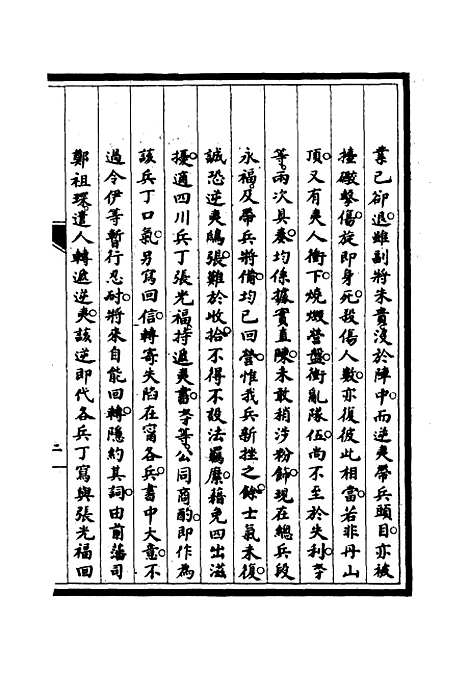 業已卻退。雖副將朱貴沒於陣中。而逆夷帶兵頭目。亦被
擡礮擊傷。旋即身死。殺傷人數。亦復彼此相當。若非丹山
頂。又有夷人衝下。燒燬營盤。衝亂隊伍。尚不至於失利。孥
等。兩次具奏。均係據實直陳。未敢稍涉粉飾。現在總兵段
永福。及帶兵將備。均已回營。惟我兵新挫之餘。士氣未復。
誠恐逆夷鴟張。難於收拾。不得不設法羈縻。藉免四出滋
擾。適四川兵丁張光福。持遞夷書。孥等。公同商酌。即作為
該兵丁口氣。另寫回信。轉寄失陷在甯各兵。書中大意。不
過令伊等暫行忍耐。將來自能回轉。隱約其詞。由前藩司
鄭祖琛。遣人轉遞逆夷。該逆即代各兵丁寫與張光福回
三